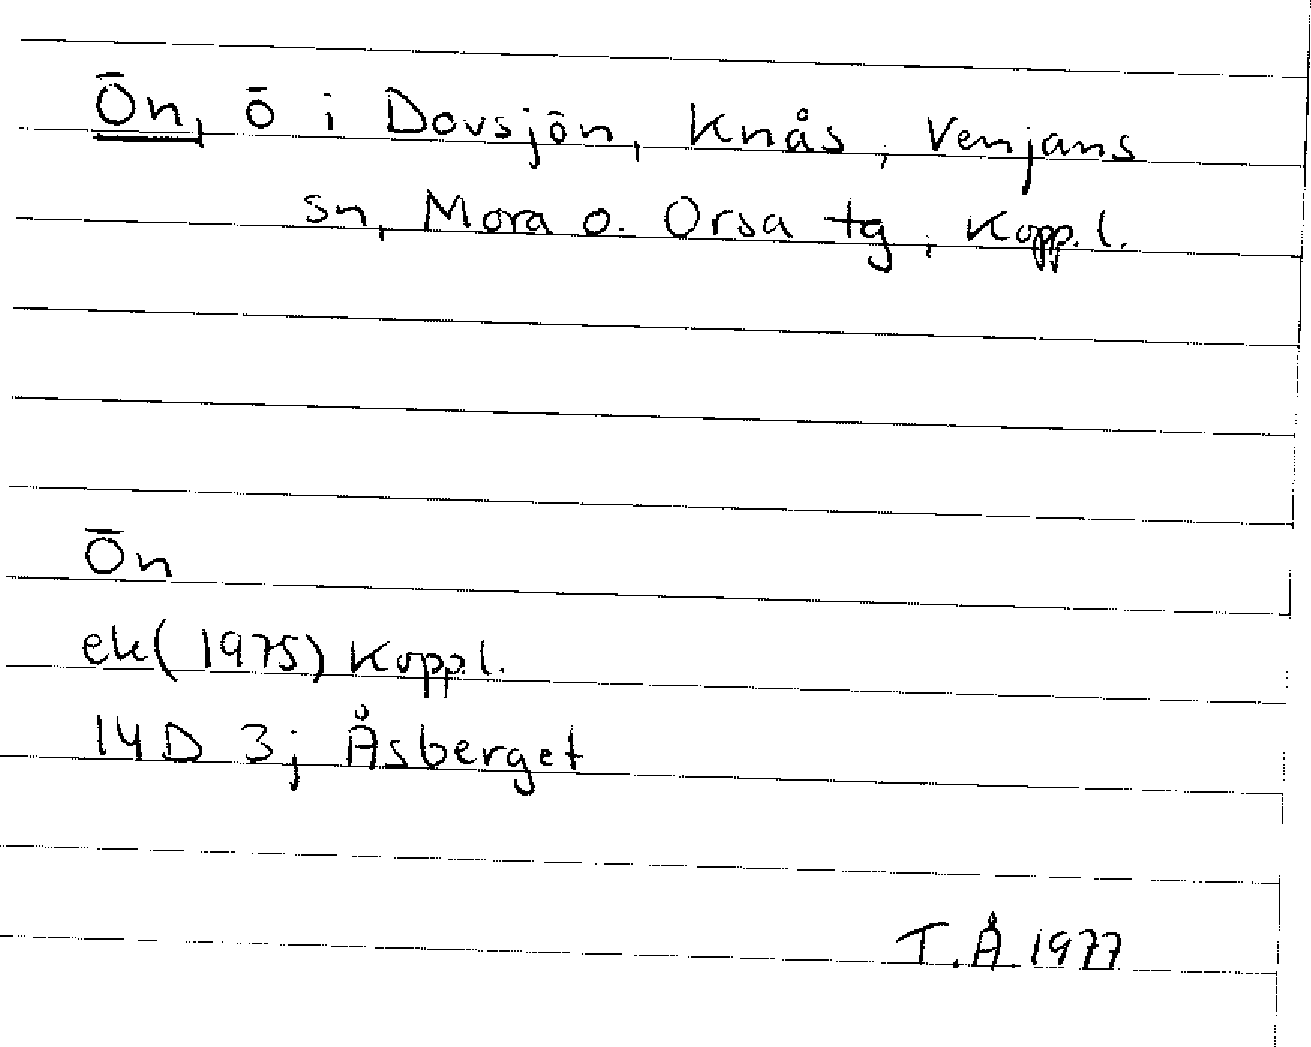 Ön, ö i Dovsjön, Knås, Venjans
sn, Mora o. Orsa tg, Kopp.l.
Ön
ek(1975) Kopp.l.
14D 3j Åsberget
T.Å 1977